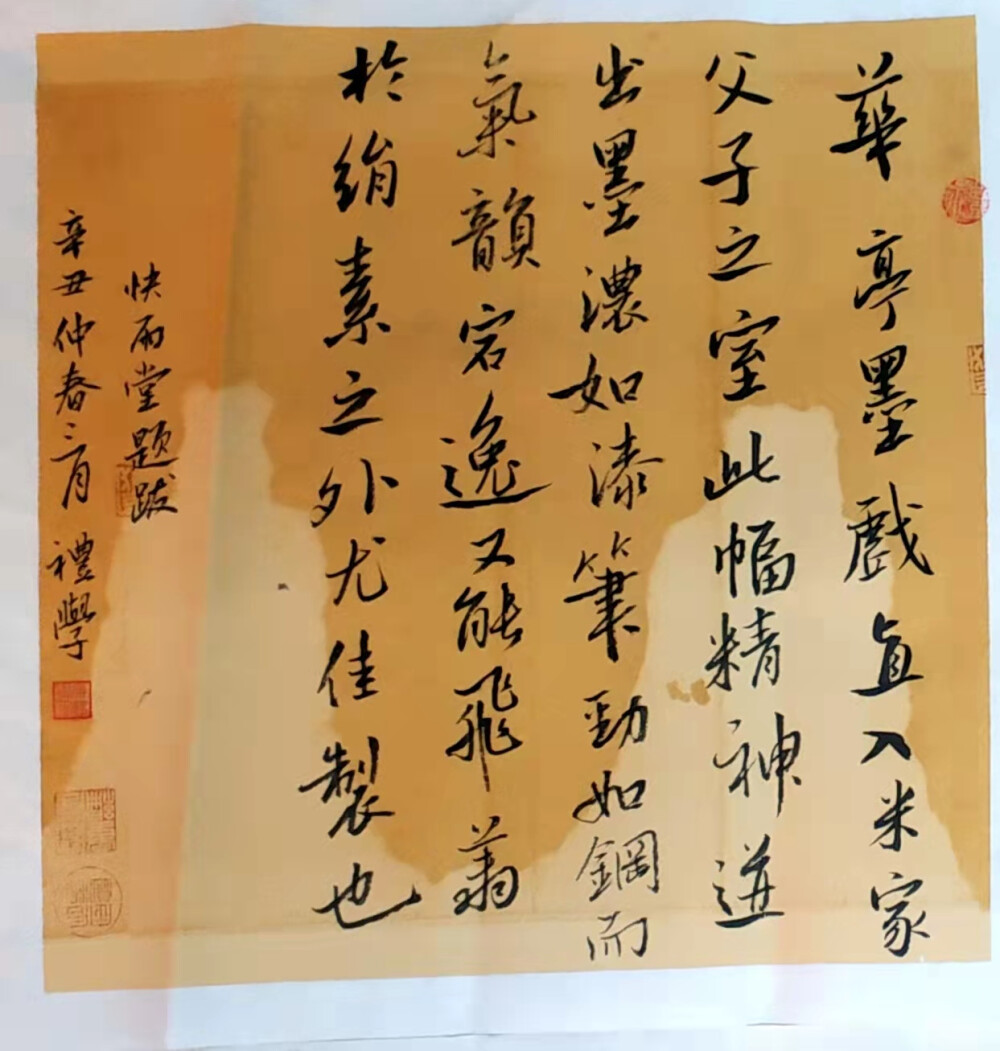 華亭墨戲真入米家
父子之室此幅精神迸
出墨濃如漆筆勁如鋼而
氣韻宕逸又能飛翥
於絹素之外尤佳製也
快雨堂题跋
辛丑仲春二月禮學